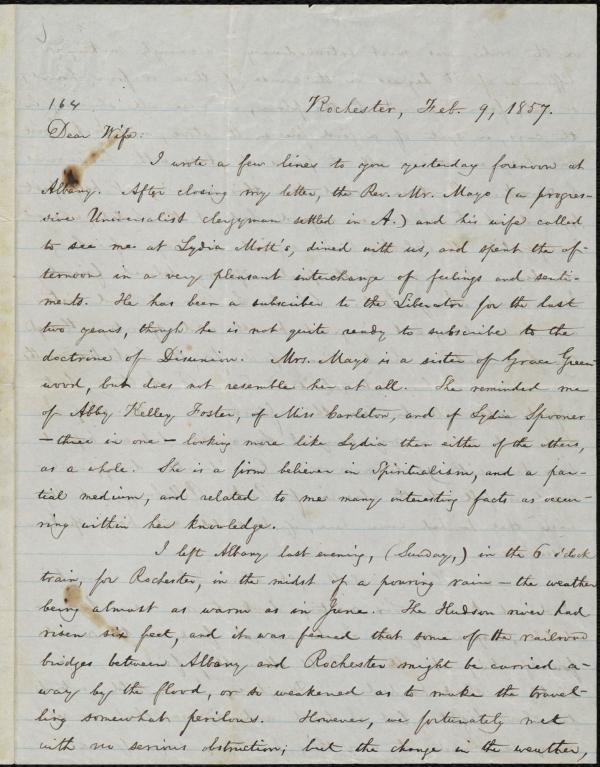 164
Rochester, Feb. 9, 1857.
Dear Wife:
I wrote a few lines to you yesterday forenoon at
Albany. After closing my letter, the Rev. Mr. Mayo (a progres-
sive Universalist clergyman settled in A.) and his wife called
to see me at Lydia Mott's, dined with us, and spent the af-
ternoon in a very pleasant interchange of feelings and senti-
ments. He has been a subscriber to the Liberator for the last
two years, though he is not quite ready to subscribe to the
doctrine of Disunion. Mrs. Mayo is a sister of Grace Green-
wood, but does not resemble her at all. She reminded me
of Abby Kelley Foster, of Miss Carleton, and of Lydia Spooner
— three in one — looking more like Lydia than either of the others,
as a whole. She is a firm believer in Spiritualism, and a par-
tial medium, and related to me many interesting facts as occur-
ring within her knowledge.
I left Albany last evening, (Sunday,) in the 6 o'clock
train, for Rochester, in the midst of a pouring rain — the weather
being almost as warm as in June. The Hudson river had
risen six feet, and it was feared that some of the railroad
bridges between Albany and Rochester might be carried a-
way by the flood, or so weakened as to make the travel-
ling somewhat perilous. However, we fortunately met
with no serious obstruction; but the change in the weather,